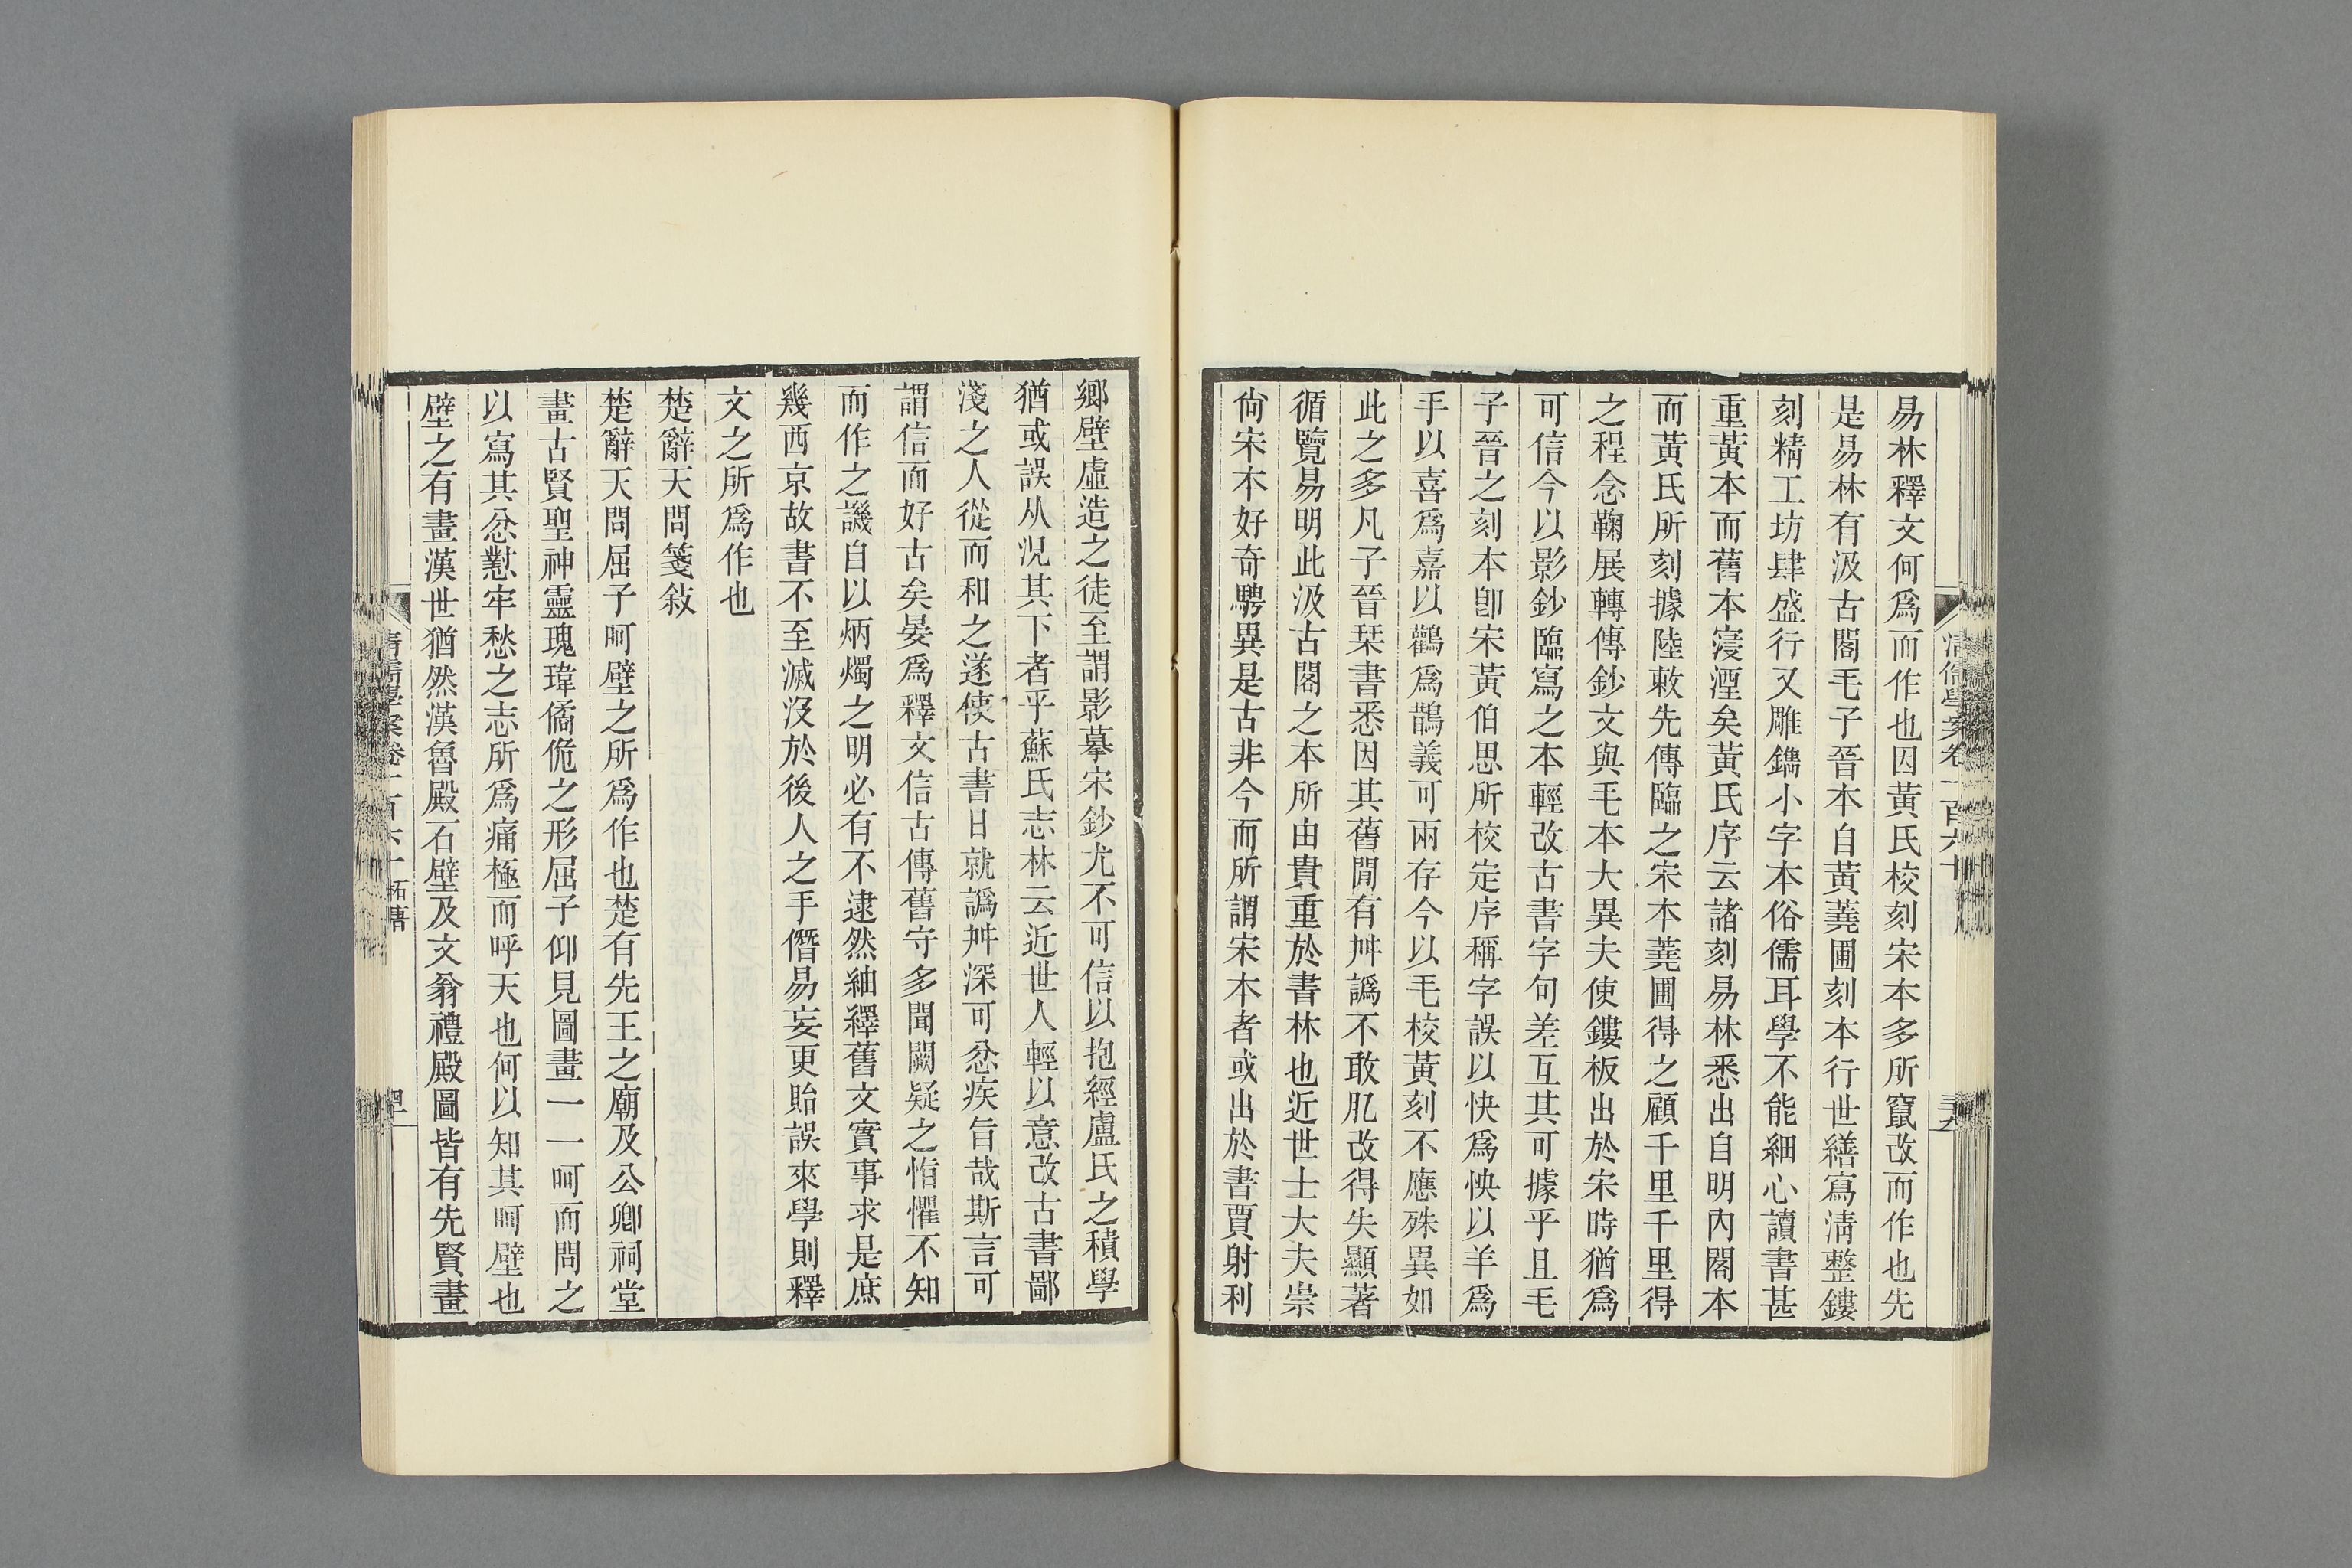 易林釋文何爲而作也因黃氏校刻宋本多所竄改而作也先
是易林有汲古閣毛子晉本自黃蕘圃刻本行世繕寫淸整鏤
刻精工坊肆盛行又雕鐫小字本俗儒耳學不能細心讀書甚
重黃本而舊本寖湮矣黃氏序云諸刻易林悉出自明內閣本
而黃氏所刻據陸敕先傳臨之宋本蕘圃得之顧千里千里得
之程念鞠展轉傳鈔文與毛本大異夫使鏤板出於宋時猶爲
可信今以影鈔臨寫之本輕改古書字句差互其可據乎且毛
子晉之刻本卽宋黃伯思所校定序稱字誤以快爲怏以羊爲
手以喜爲嘉以鸛爲鵲義可兩存今以毛校黃刻不應殊異如
此之多凡子晉栞書悉因其舊閒有舛譌不敢肊改得失顯著
循覽易明此汲古閣之本所由貴重於書林也近世士大夫崇
尙宋本好奇騁異是古非今而所謂宋本者或出於書賈射利
鄉壁虛造之徒至謂影摹宋鈔尤不可信以抱經盧氏之積學
猶或誤从況其下者乎蘇氏志林云近世人輕以意改古書鄙
淺之人從而和之遂使古書日就譌舛深可忿疾旨哉斯言可
謂信而好古矣晏爲釋文信古傳舊守多聞闕疑之恉懼不知
而作之譏自以炳燭之明必有不逮然紬繹舊文實事求是庶
幾西京故書不至滅沒於後人之手僭易妄更貽誤來學則釋
文之所爲作也
楚辭天問箋敍
楚辭天問屈子呵壁之所爲作也楚有先王之廟及公卿祠堂
畫古賢聖神靈瑰瑋僪佹之形屈子仰見圖畫一一呵而問之
以寫其忿懟牢愁之志所爲痛極而呼天也何以知其呵壁也
壁之有畫漢世猶然漢魯殿石壁及文翁禮殿圖皆有先賢畫